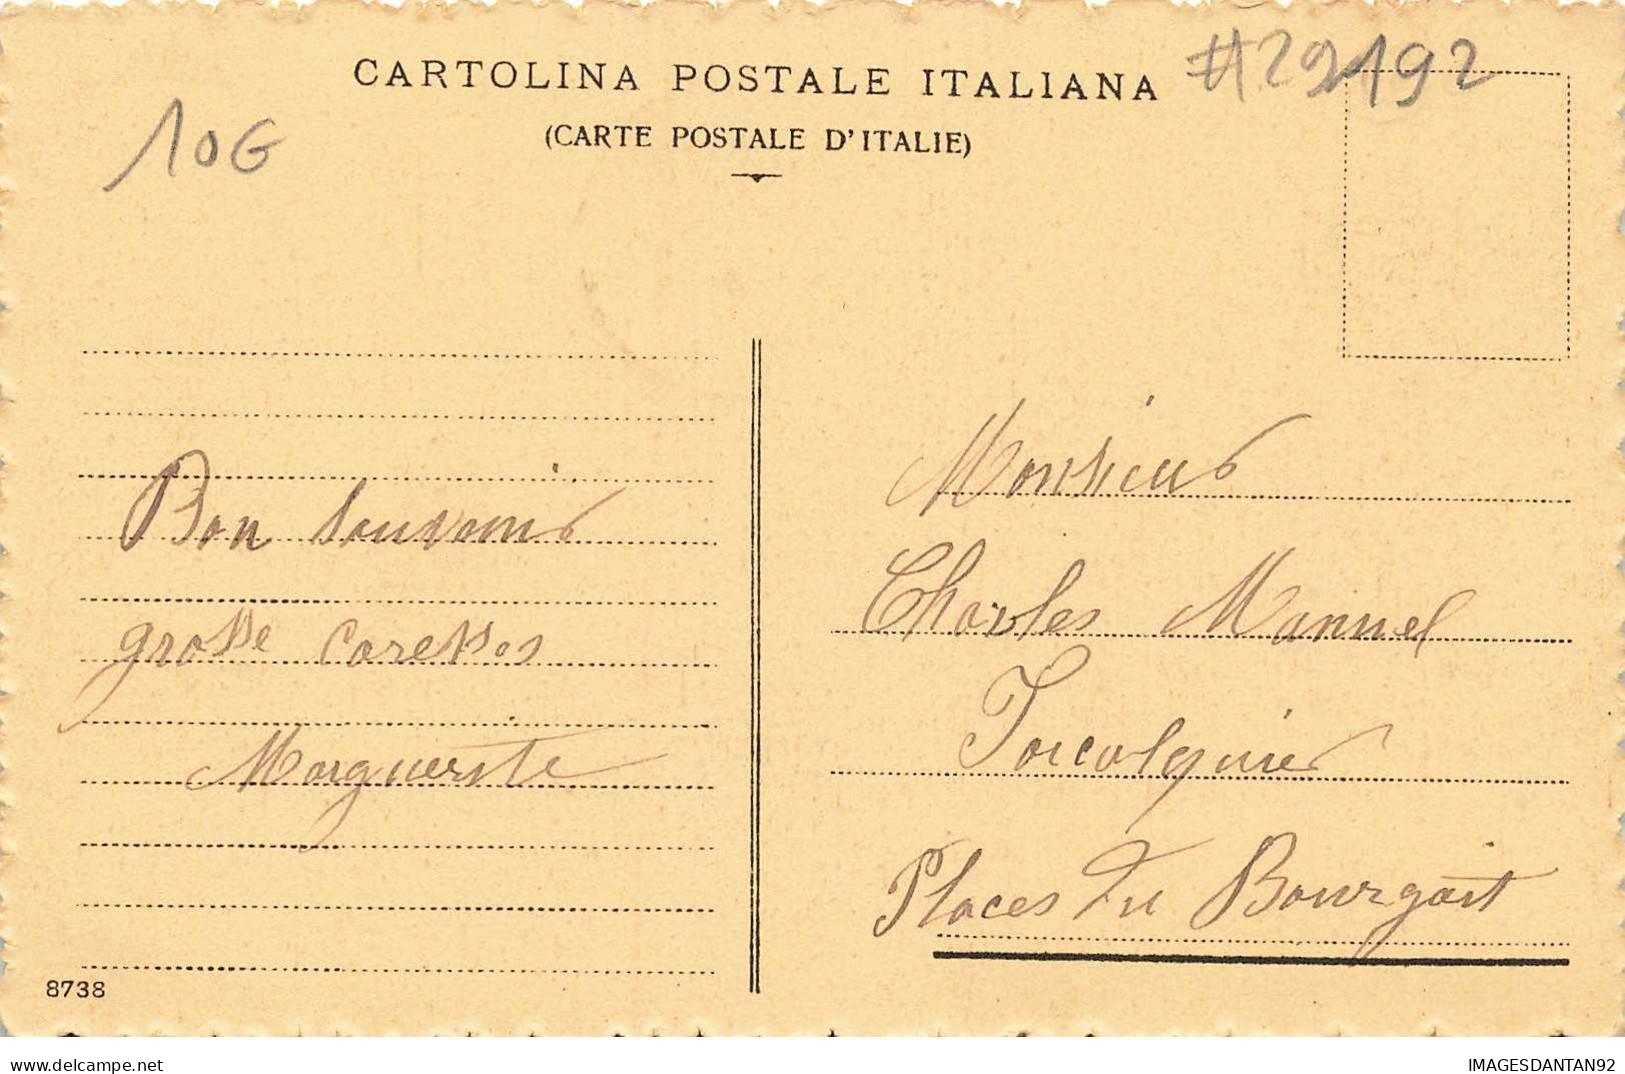 CARTOLINA POSTALE ITALIANA
#29192
(CARTE POSTALE D'ITALIE)
10G
Monsieur
Bon Souvenir
Charles Manuel
grosse caresses
Forcalquier
Marguerite
Places du Bourgait
8738
IMAGESDANTAN92